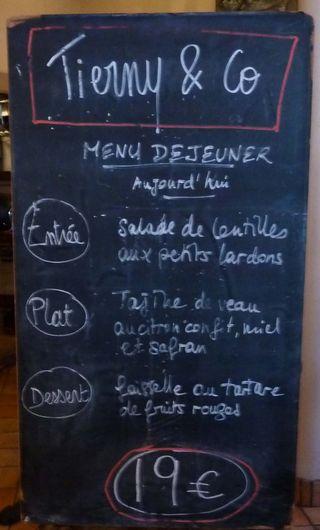 Tierny & Co
MENU DEJEUNER
Aujourd'hui
Entrée
Salade de lentilles
aux petits lardons
Plat
Tajine de veau
au citron confit, miel
et safran
Dessert
faisselle au tartare
de fruits rouges
19 €